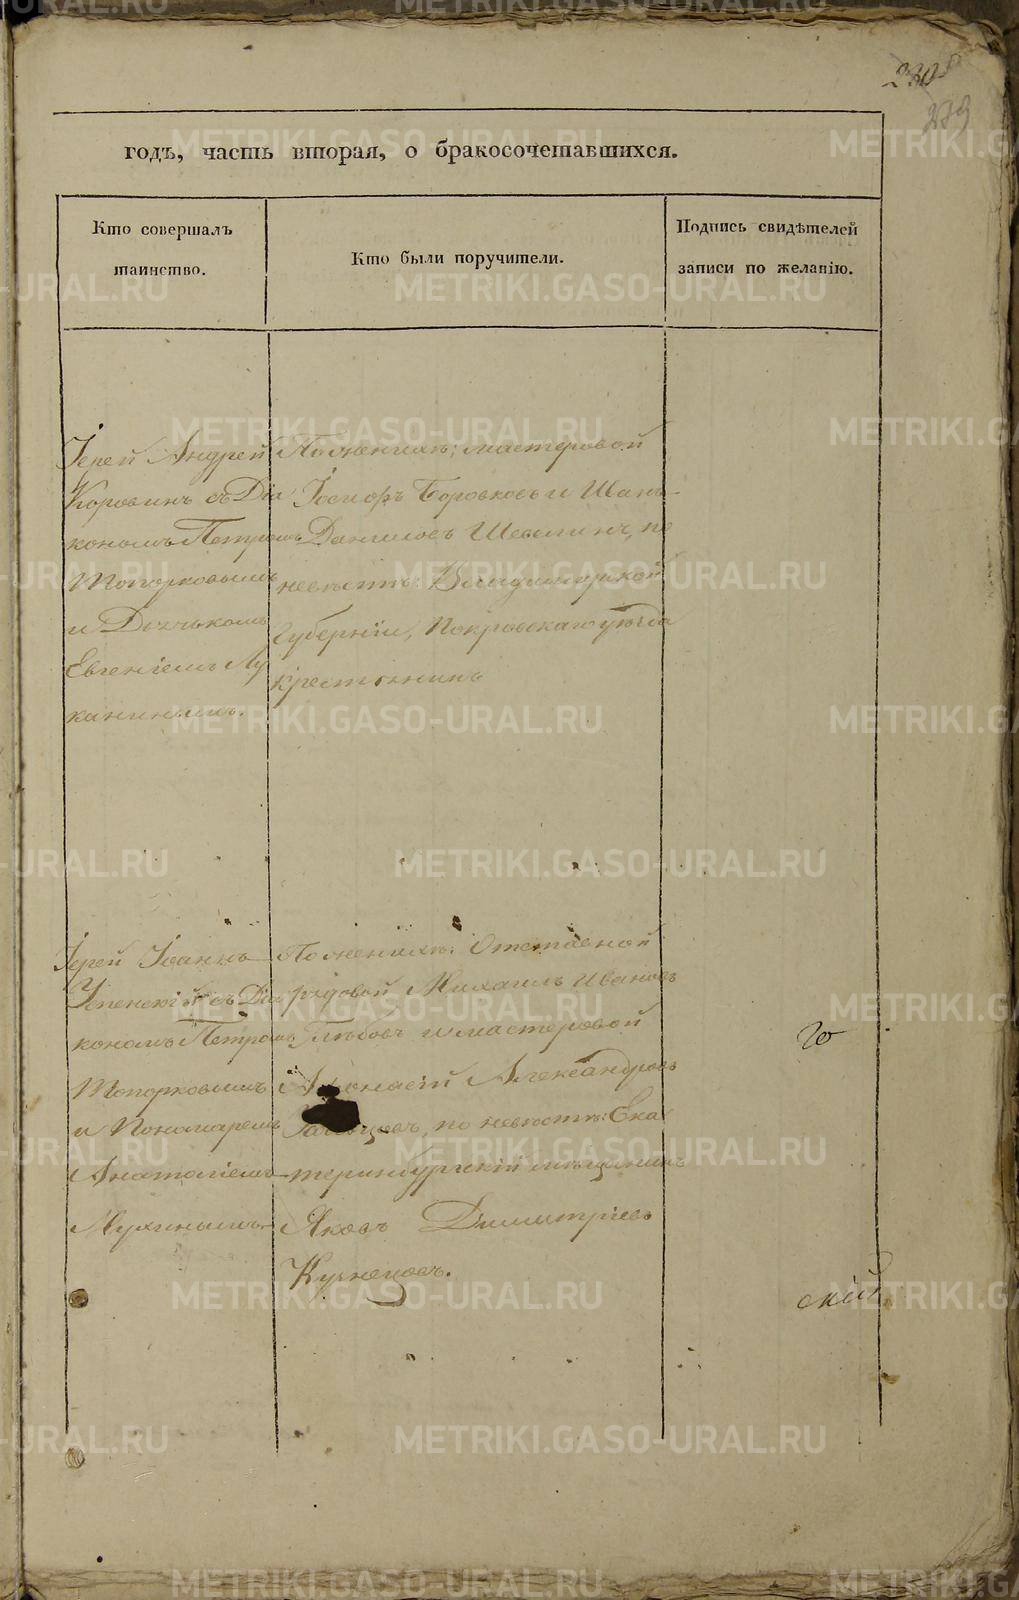 230
годъ, часть вторая, о бракосочетавшихся.
Кто совершалъ
таинство.
Кто были поручители.
Подпись свидѣтелей
записи по желанію.
Іерей Андрей
Коровинъ съ Діа
кономъ Петромъ
Топорковымъ
и Дьячькомъ
Евгеніемъ Лу
канинымъ.
По женихѣ: мастеровой
Іосифъ Боровковъ и Иванъ
Даниловъ, по
невѣстѣ: Владимирской
Губерніи, Покровскаго уѣзда
крестьянинъ
Іерей Іоаннъ
Успенскій съ Діа
кономъ Петромъ
Топорковымъ
и Пономаремъ
Анатоліемъ
Мухинымъ.
По женихѣ: Отставной
рядовой Михаилъ Ивановъ
Глѣбовъ и мастеровой
Афонасій Александровъ
по невѣстѣ: Ека
теринбургскій мѣщанинъ
Яковъ Димитріевъ
Кузнецовъ.
го
скій
METRIKI.GASO-URAL.RU